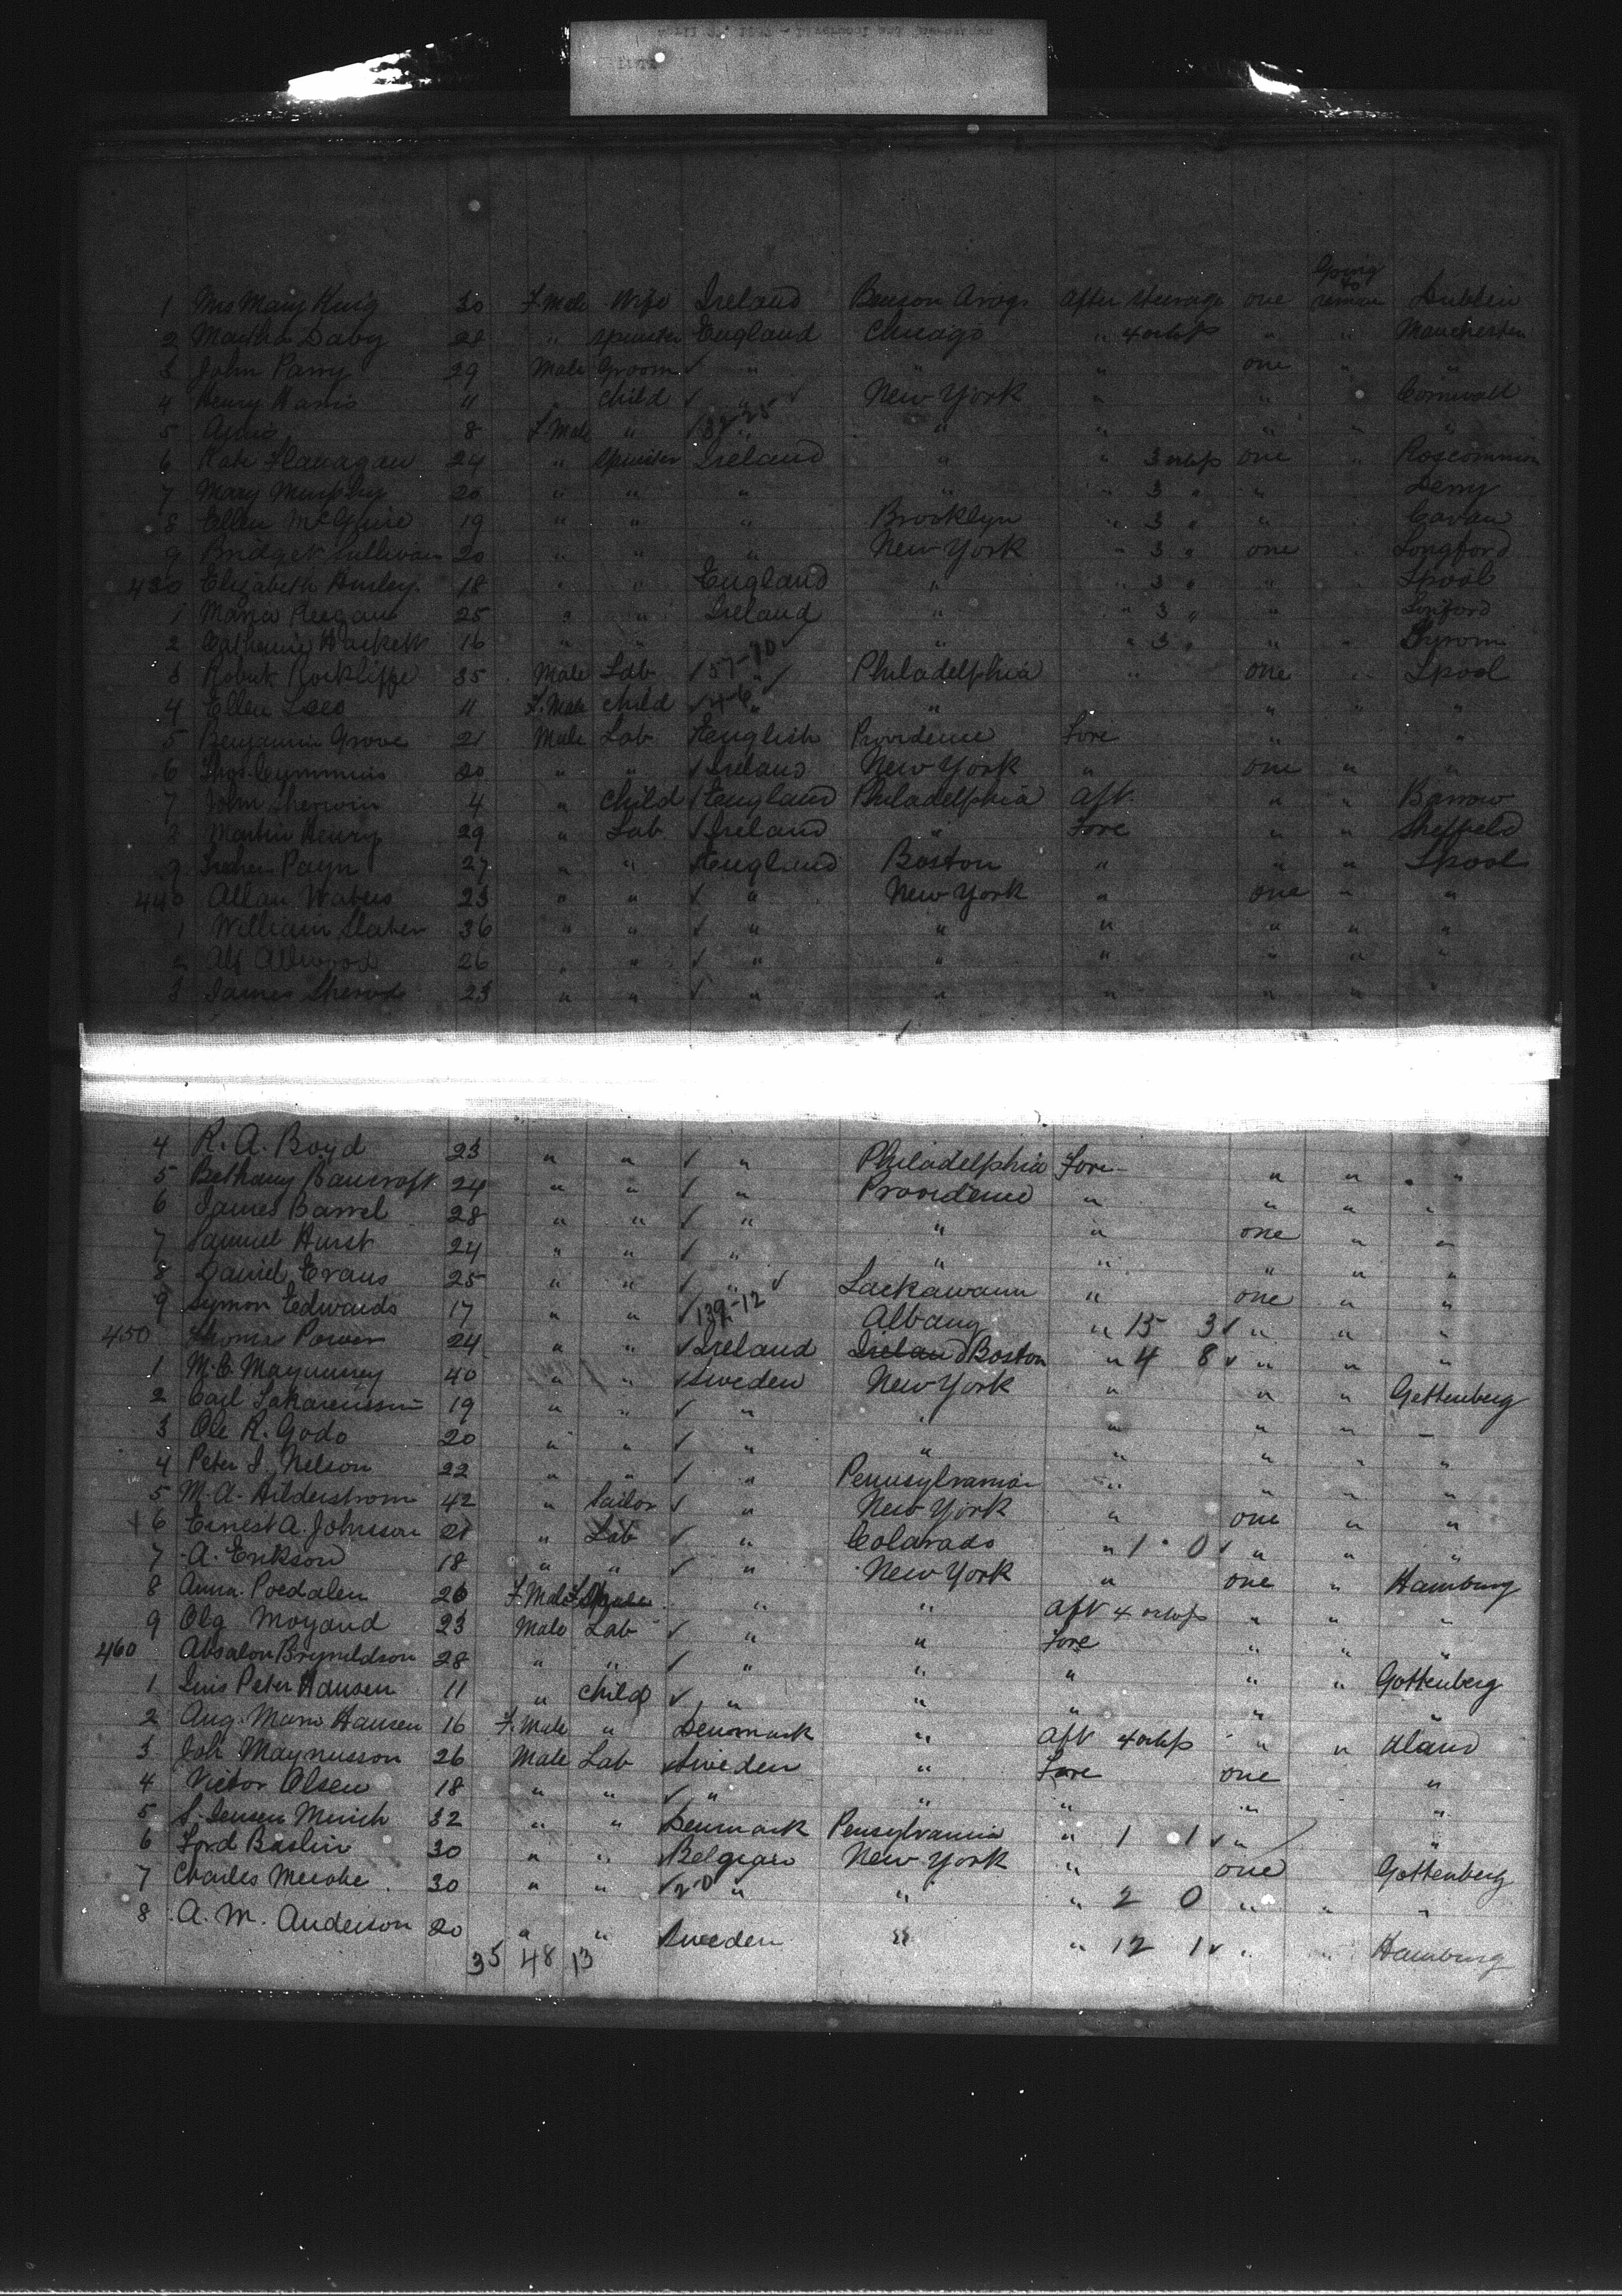 1 Mrs Mary King 30 F.Male Wife Ireland After Steerage one Going to remain Dublin
2 Martha Daby 28 " Spinster England Chicago " 4 orlop " " Manchester
3 John Parry 29 Male Groom ✓ " " " one " "
4 Henry Harris 11 child ✓ " ✓ New York " " Cornwall
5 8 F.Male " " " " " "
6 Kate Flanagan 24 " Spinster Ireland " " 3 orlop one " Roscommon
7 Mary Murphy 20 " " " " " 3 " " Derry
8 Ellen McGuire 19 " " " Brooklyn " 3 " " Cavan
9 Bridget Sullivan 20 " " " New York " 3 " one Longford
430 Elizabeth Hurley 18 " " England " " 3 " " Lpool
1 Maria Keegan 25 " " Ireland " " 3 " "
2 Catherine Hackett 16 " " " " 3 " " "
3 Robert Rockliffe 35 Male Lab ✓ 57-70 ✓ Philadelphia " one " Lpool
4 Ellen 11 F.Male child ✓ " " " " "
5 Benjamin Grove 21 Male Lab English Providence Fore " "
6 Thos. Cummins 20 " " ✓ Ireland New York " one " "
7 John Sherwin 4 " child ✓ England Philadelphia Aft. " " Barrow
8 Martin Henry 29 " Lab ✓ Ireland " Fore " " Sheffield
9 Payn 27 " " England Boston " " " Lpool
440 Allan Waters 23 " " ✓ " New York " one " "
1 William Slater 36 " " ✓ " " " " " "
2 Alf Allwood 26 " " ✓ " " " " " "
3 James 23 " " ✓ " " " " " "
4 R. A. Boyd 23 " " ✓ " Philadelphia Fore " " "
5 Bethany Bancroft 24 " " ✓ " Providence " " " "
6 James Barrel 28 " " ✓ " " " one " "
7 Samuel Hurst 24 " " ✓ " " " " " "
8 Daniel Evans 25 " " ✓ " ✓ Lackawann " one " "
9 Symon Edwards 17 " " ✓ 139-12 Albany " 15 3 ✓ " " "
450 Thomas Power 24 " " ✓ Ireland Ireland Boston " 4 8 ✓ " " "
1 40 " " ✓ Sweden New York " " " Gettenberg
2 Carl 19 " " ✓ " " " " "
3 Ole R. Godo 20 " " ✓ " " " " " "
4 Peter I. Nelson 22 " " ✓ " Pennsylvania " " " "
5 M. A. Hilderstrom 42 " Tailor ✓ " New York " one " "
6 Ernest A. Johnson 21 " Lab ✓ " Colarado " 1 0 ✓ " " "
7 A. Erikson 18 " " ✓ " New York " one " Hamburg
8 Anna Poedalen 26 F.Male " " Aft 4 orlop " " "
9 Olg Moyand 23 Male Lab ✓ " " Fore " " "
460 Absalon Brynildson 28 " " ✓ " " " " " Gottenberg
1 Peter Hansen 11 " child ✓ " " " " "
2 Aug. Marie Hansen 16 F.Male " Denmark " Aft 4 orlop " " Aland
3 Joh Maynusson 26 Male Lab Sweden " Fore one "
4 Victor Olsen 18 " " ✓ " " " " "
5 S. Jensen Munch 32 " " Denmark Pensylvania " 1 1 ✓ " "
6 Ford Baslin 30 " " Belgian New York " one Gottenberg
7 Charles 30 " " ✓ 20 " " " 2 0 " " "
8 A. M. Anderson 20 " " Sweden " " 12 1 ✓ " " Hamburg
35 48 13